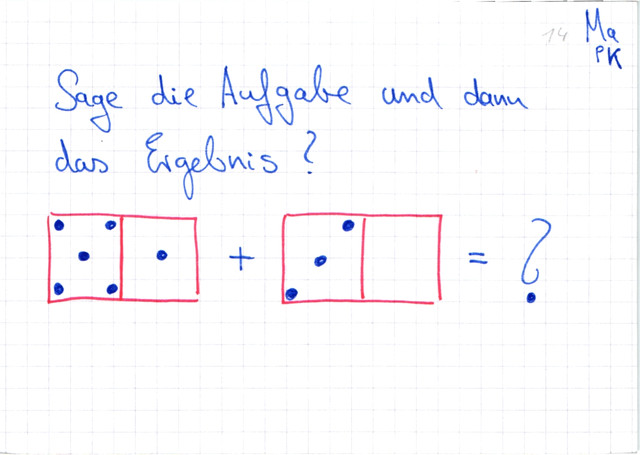 14 Ma
PK
Sage die Aufgabe und dann
das Ergebnis?
+ = ?